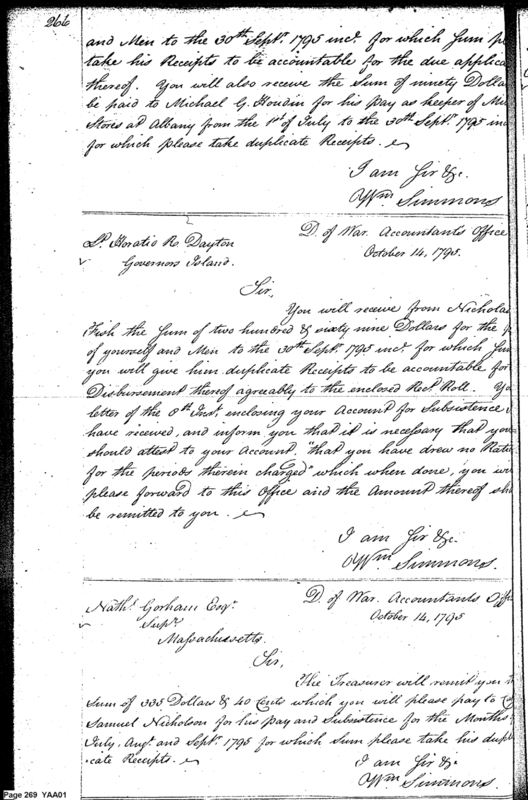 266
and Men to the 30th Septr. 1795 incl. for which Sum
take his Receipts to be accountable for the due applica
thereof. You will also receive the Sum of ninety Dollar
be paid to Michael G. Houdin for his Pay as keeper of
Stores at Albany from the 1st of July to the 30th Septr. 1795 inc
for which please take duplicate Receipts.
I am Sir &c.
Wm. Simmons
Lt. Horatio R. Dayton
Governors Island.
D. of War. Accountants Office
October 14, 1795.
Sir,
You will receive from Nichola
Fish the Sum of two hundred & sixty nine Dollars for the
of yourself and Men to the 30th Septr. 1795 incl. for which Sum
you will give him duplicate Receipts to be accountable for
Disbursement thereof agreeably to the enclosed Rect. Roll. Yo
letter of the 8th Inst. enclosing your Account for Subsistence
have received, and inform you that it is necessary that you
should attest to your Account, "that you have drew no Rati
for the periods therein charged" which when done, you wi
please forward to this Office and the Amount thereof sha
be remitted to you.
I am Sir &c.
Wm. Simmons.
Nathl. Gorham Esqr.
Supr.
Massachusetts.
D. of War. Accountants Offi
October 14, 1795
Sir,
The Treasurer will remit you
Sum of 335 Dollars & 40 Cents which you will please pay to
Samuel Nicholson for his Pay and Subsistence for the Months
July, Augt. and Septr. 1795 for which Sum please take his dupl
icate Receipts.
I am Sir &c
Wm. Simmons.
Page 269 YAA01